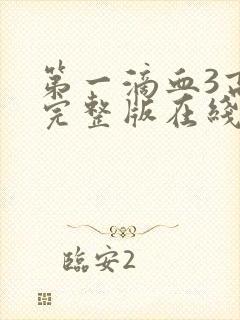 第一滴血3高
完整版在綫
臨安2